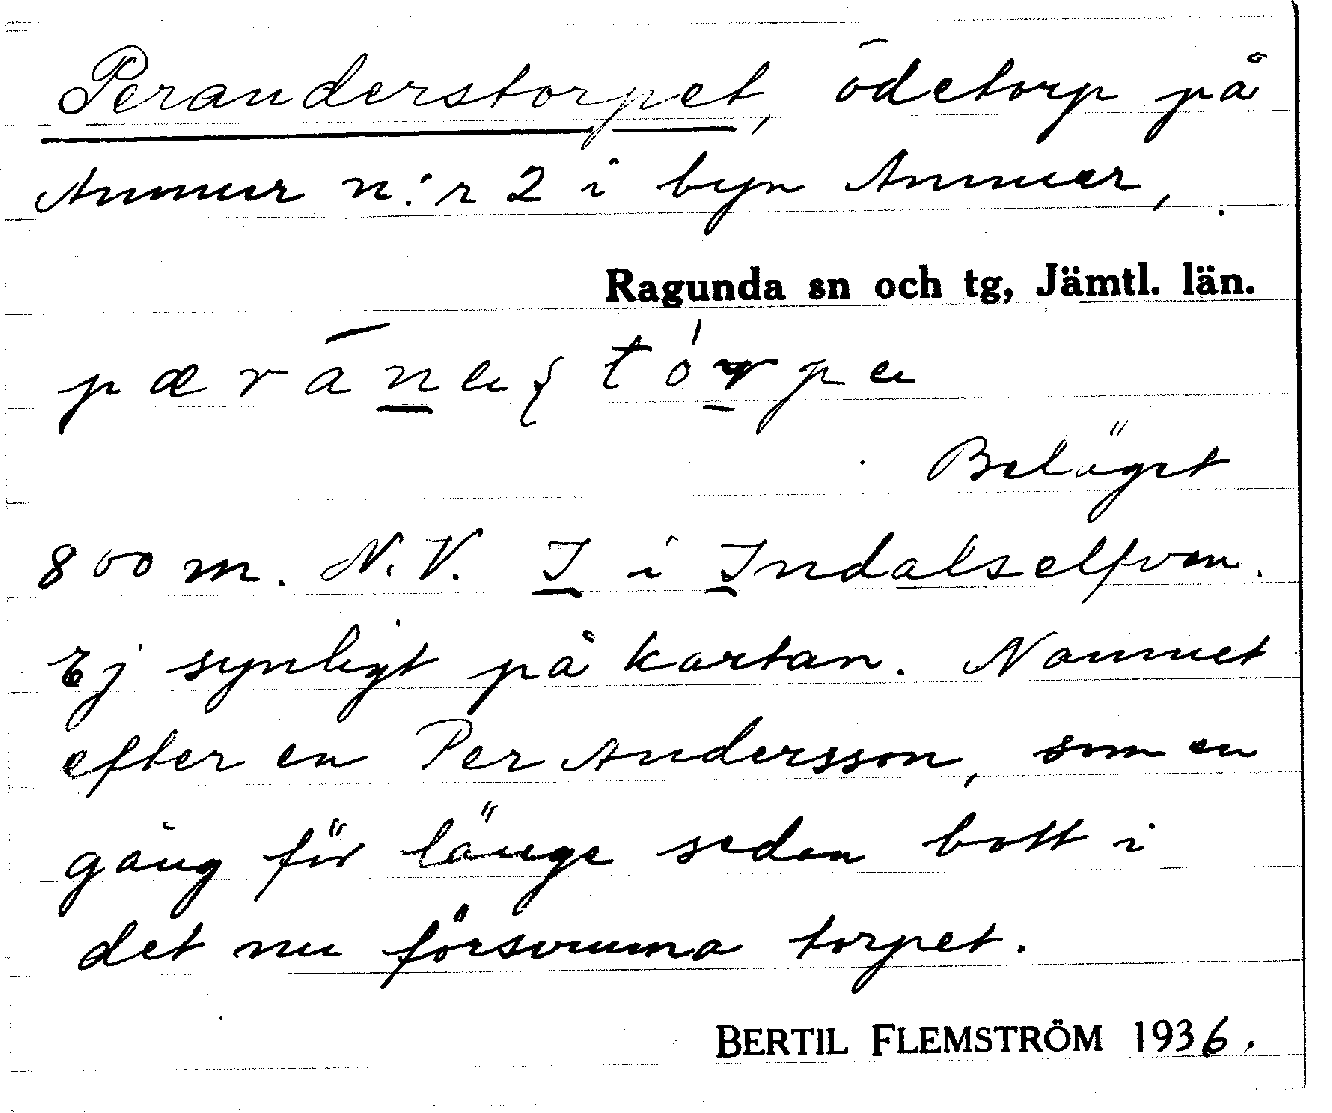 Peranderstorpet, ödetorp på
Ammer n:r 2 i byn Ammer,
Ragunda sn och tg, Jämtl. län.
Beläget
800 m. N.V. I i Indalselfven.
Ej synligt på kartan. Namnet
efter en Per Andersson, som en
gång för länge sedan bott i
det nu försvunna torpet.
BERTIL FLEMSTRÖM 1936.